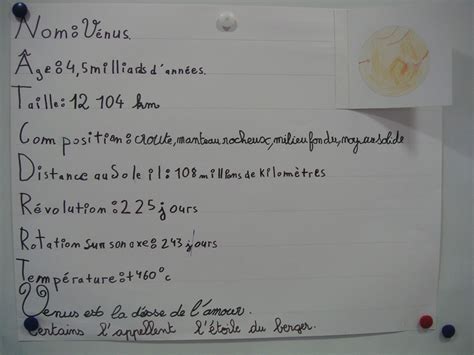 Nom : Vénus.
Âge : 4,5 milliards d'années.
Taille : 12 104 km
Composition : croute, manteau rocheux, milieu fondu, noyau solide
Distance au Soleil : 108 millions de kilomètres
Révolution : 225 jours
Rotation sur son axe : 243 jours
Température : +460°c
Venus est la désse de l'amour.
Certains l'appellent l'étoile du berger.